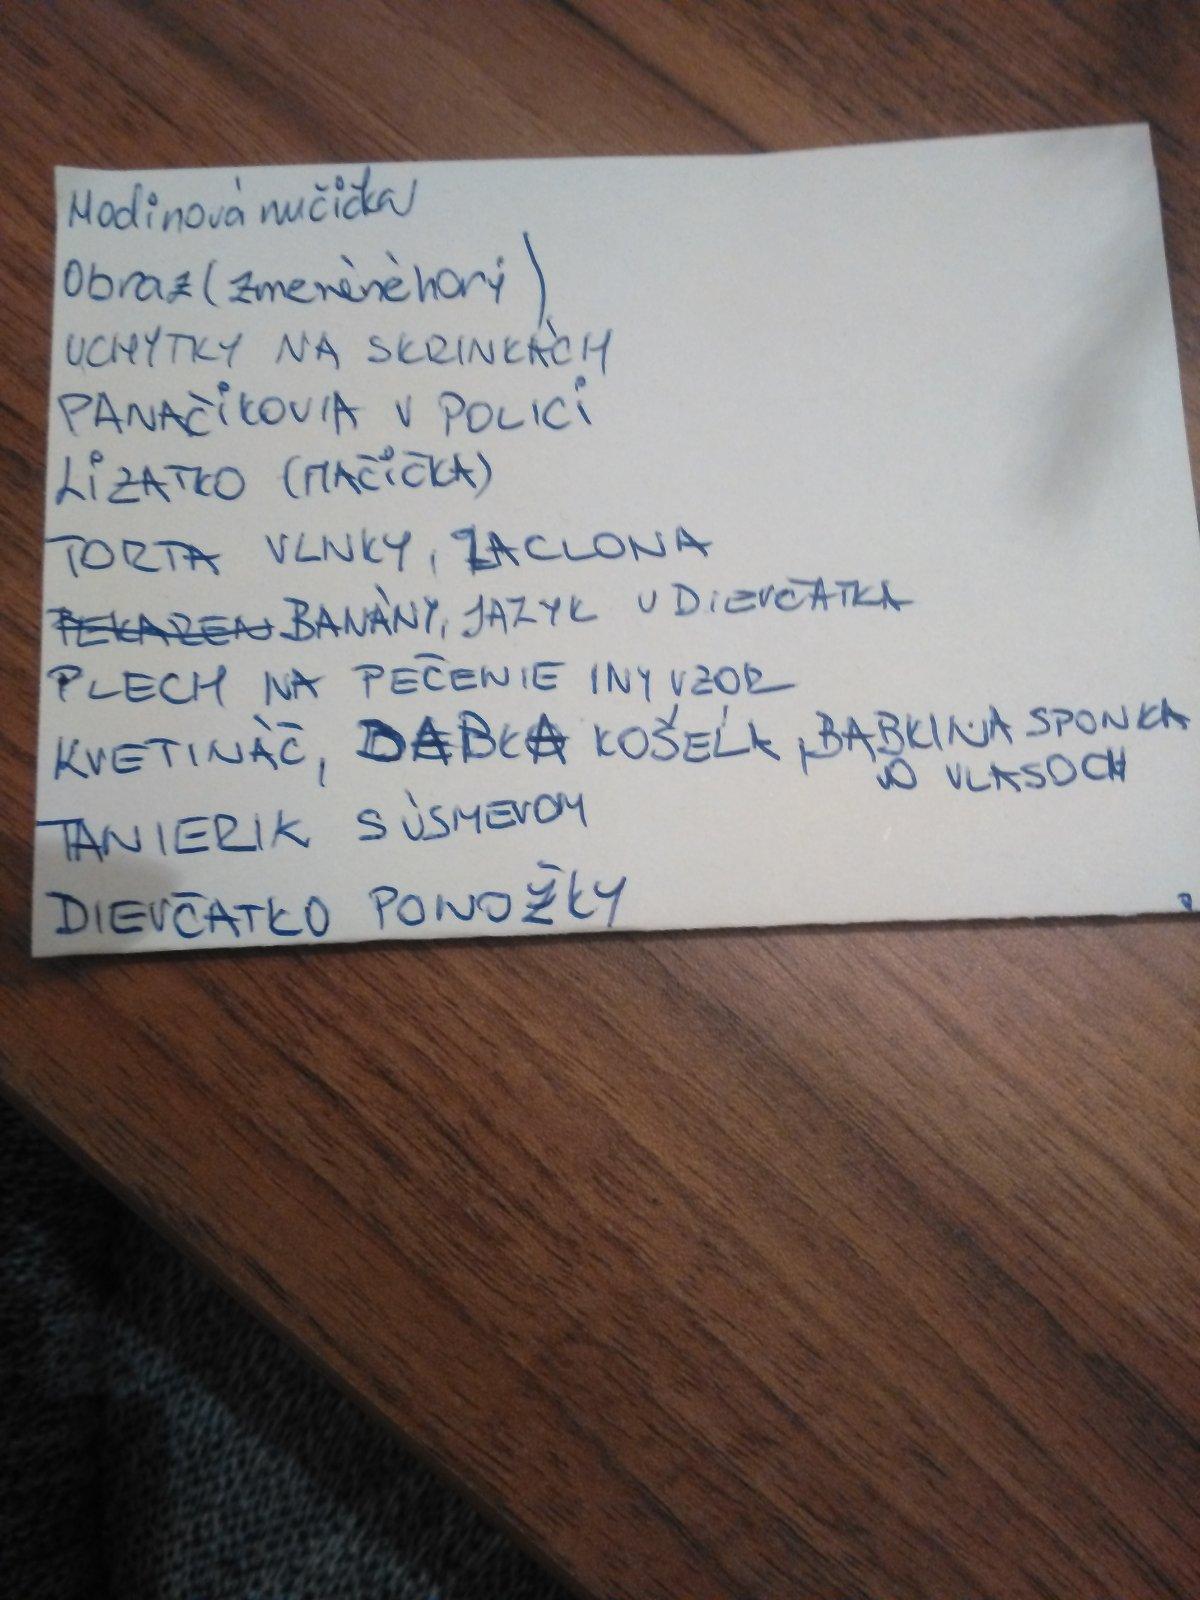 Hodinová nučička
Obraz (zmenéné hory)
UCHYTKY NA SKRINKÁCH
PANAČIKOVIA V POLICI
LIZATKO (MAČIČKA)
TORTA VLNKY, ZACLONA
BANÁNY, JAZYK U DIEVČATKA
PLECH NA PEČENIE INY VZOR
KVETINÁČ, BABKA KOŠEĽA, BABKINA SPONKA
VO VLASOCH
TANIERIK S ÚSMEVOM
DIEVČATKO PONOŽKY